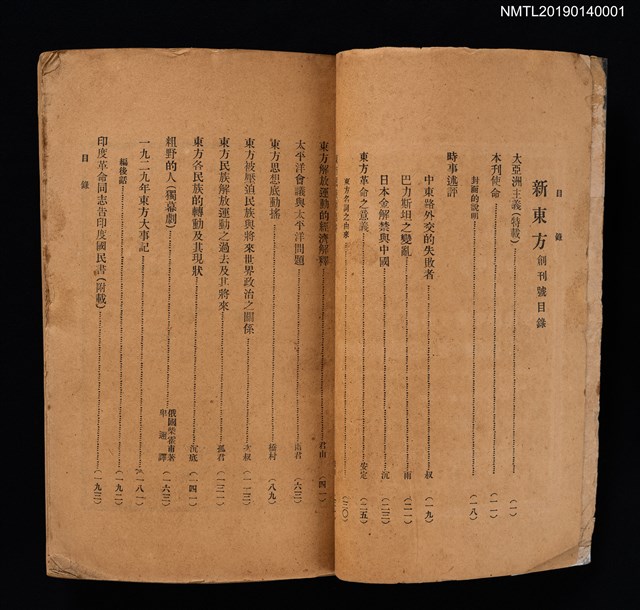 NMTL20190140001
目錄
新東方創刊號目錄
大亞洲主義（特載）……（一）
本刊使命……（一一）
封面的說明……（一八）
時事述評
中東路外交的失敗者……叔（一九）
巴力斯坦之變亂……雨（二一）
日本金解禁與中國……沉（二三）
東方革命之意義……安定（二五）
東方名詞之由來……（三〇）
東方解放運動的經濟解釋……君山（四一）
太平洋會議與太平洋問題……雨君（六三）
東方思想底動搖……植村（八九）
東方被壓迫民族與將來世界政治之關係……叔（一一三）
東方民族解放運動之過去及其將來……孤君（一三一）
東方各民族的轉動及其現狀……沉底（一四一）
粗野的人（獨幕劇）……俄國柴霍甫著 畢 譯（一六三）
一九二九年東方大事記……（一八一）
編後話……（一九二）
印度革命同志告印度國民書（附載）……（一九三）
目錄